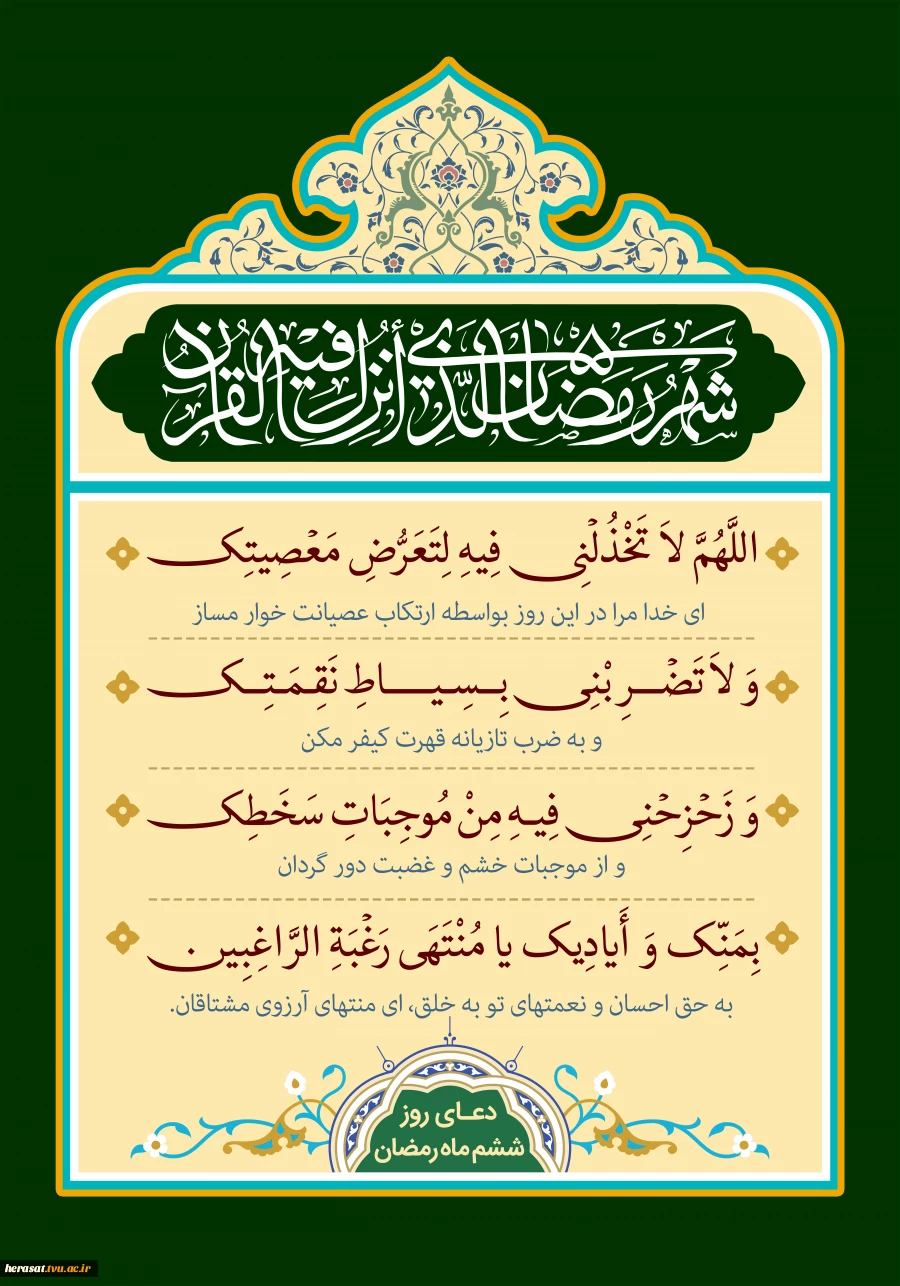 شَهْرُ رَمَضَانَ الَّذِي أُنْزِلَ فِيهِ الْقُرْآنُ
اللَّهُمَّ لاَ تَخْذُلْنِی فِیهِ لِتَعَرُّضِ مَعْصِیتِک
ای خدا مرا در این روز بواسطه ارتکاب عصیانت خوار مساز
وَ لاَ تَضْرِبْنِی بِسِیاطِ نَقِمَتِک
و به ضرب تازیانه قهرت کیفر مکن
وَ زَحْزِحْنِی فِیهِ مِنْ مُوجِبَاتِ سَخَطِک
و از موجبات خشم و غضبت دور گردان
بِمَنِّک وَ أَیادِیک یا مُنْتَهَى رَغْبَةِ الرَّاغِبِین.
به حق احسان و نعمتهای تو به خلق، ای منتهای آرزوی مشتاقان.
دعای روز
ششم ماه رمضان
herasat.tvu.ac.ir